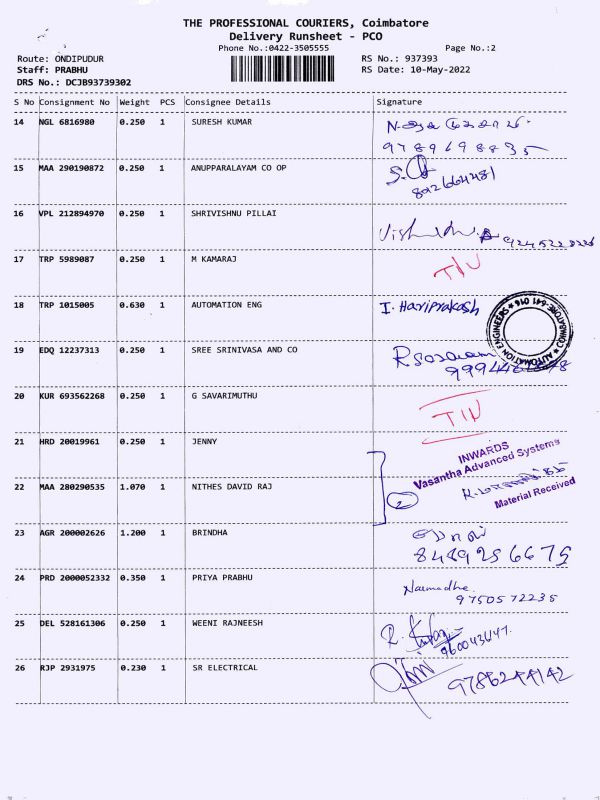 THE PROFESSIONAL COURIERS, Coimbatore
Delivery Runsheet - PCO
Phone No.:0422-3505555
Page No.:2
Route: ONDIPUDUR
RS No.: 937393
Staff: PRABHU
RS Date: 10-May-2022
DRS No.: DCJB93739302
S No Consignment No Weight PCS Consignee Details Signature
14 NGL 6816980 0.250 1 SURESH KUMAR
9789698835
15 MAA 290190872 0.250 1 ANUPPARALAYAM CO OP
16 VPL 212894970 0.250 1 SHRIVISHNU PILLAI
17 TRP 5989087 0.250 1 M KAMARAJ
18 TRP 1015005 0.630 1 AUTOMATION ENG I. Hariprakash
AUTOMATION ENGINEERS COIMBATORE-641 016
19 EDQ 12237313 0.250 1 SREE SRINIVASA AND CO
20 KUR 693562268 0.250 1 G SAVARIMUTHU
21 HRD 20019961 0.250 1 JENNY
INWARDS
Vasantha Advanced Systems
22 MAA 280290535 1.070 1 NITHES DAVID RAJ 2
Material Received
23 AGR 200002626 1.200 1 BRINDHA
8489256675
24 PRD 2000052332 0.350 1 PRIYA PRABHU Narmadhe.
9750572235
25 DEL 528161306 0.250 1 WEENI RAJNEESH
26 RJP 2931975 0.230 1 SR ELECTRICAL
9786244142